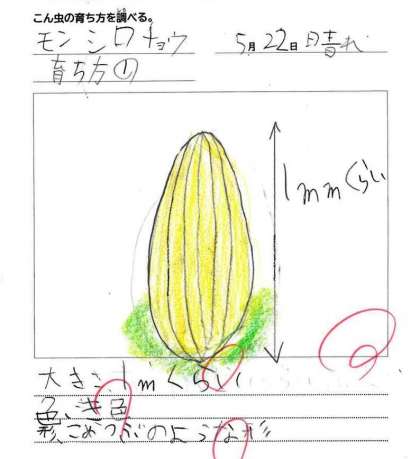 こん虫の育ち方を調べる。
モンシロチョウ 5月22日晴れ
育ち方①
1mmくらい
大きさ、1mくらい
色、黄色
形、こめつぶのような形